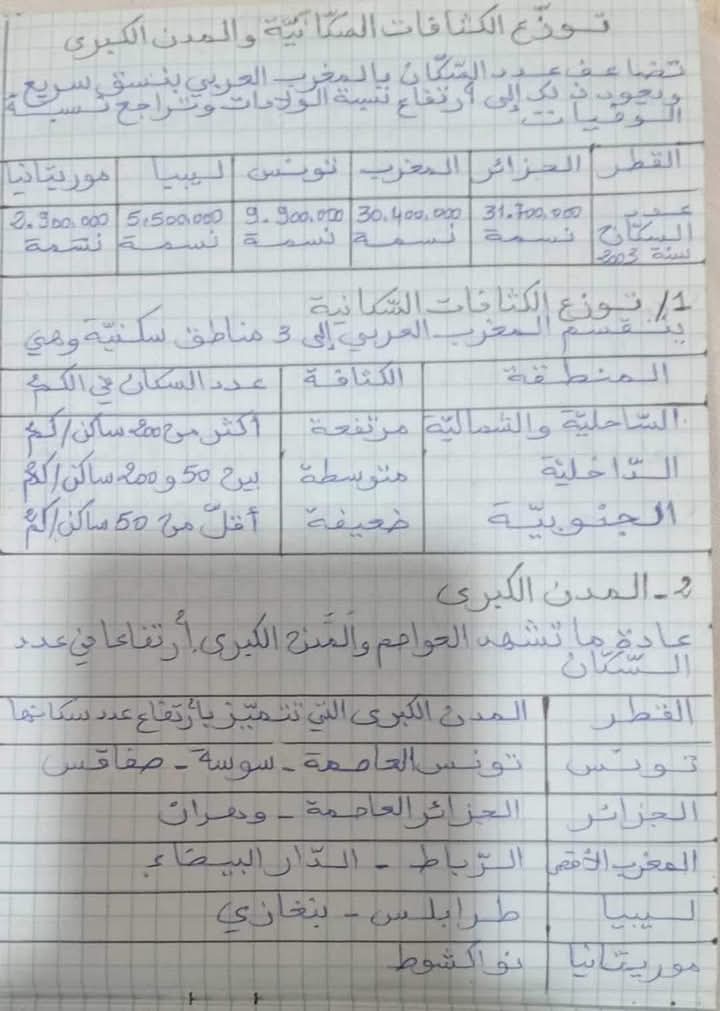 توزّع الكثافات السكّانيّة والمدن الكبرى
تضاعف عدد السكّان بالمغرب العربي بنسق سريع
ويعود ذلك إلى أرتفاع نسبة الولادات وتراجع نسبة
الوفيات.
القطر الجزائر المغرب تونس ليبيا موريتانيا
عدد السكّان سنة 2003 31.700.000 نسمة 30.400.000 نسمة 9.900.000 نسمة 5.500.000 نسمة 2.900.000 نسمة
1/ توزع الكثافات السّكانية
ينقسم المغرب العربي إلى 3 مناطق سكنيّة وهي
المنطقة الكثافة عدد السكان في الكم²
السّاحليّة والشماليّة مرتفعة أكثر من 200 ساكن/كم²
الدّاخليّة متوسطة بين 50 و 200 ساكن/كم²
الجنوبيّة ضعيفة أقلّ من 50 ساكن/كم²
2 - المدن الكبرى
عادة ما تشهد العواصم والمدن الكبرى أرتفاعا في عدد
السّكان
القطر المدن الكبرى التي تتميّز بأرتفاع عدد سكانها
تونس تونس العاصمة - سوسة - صفاقس
الجزائر الجزائر العاصمة - وهران
المغرب الأقصى الرّباط - الدّار البيضاء
ليبيا طرابلس - بنغازي
موريتانيا نواكشوط